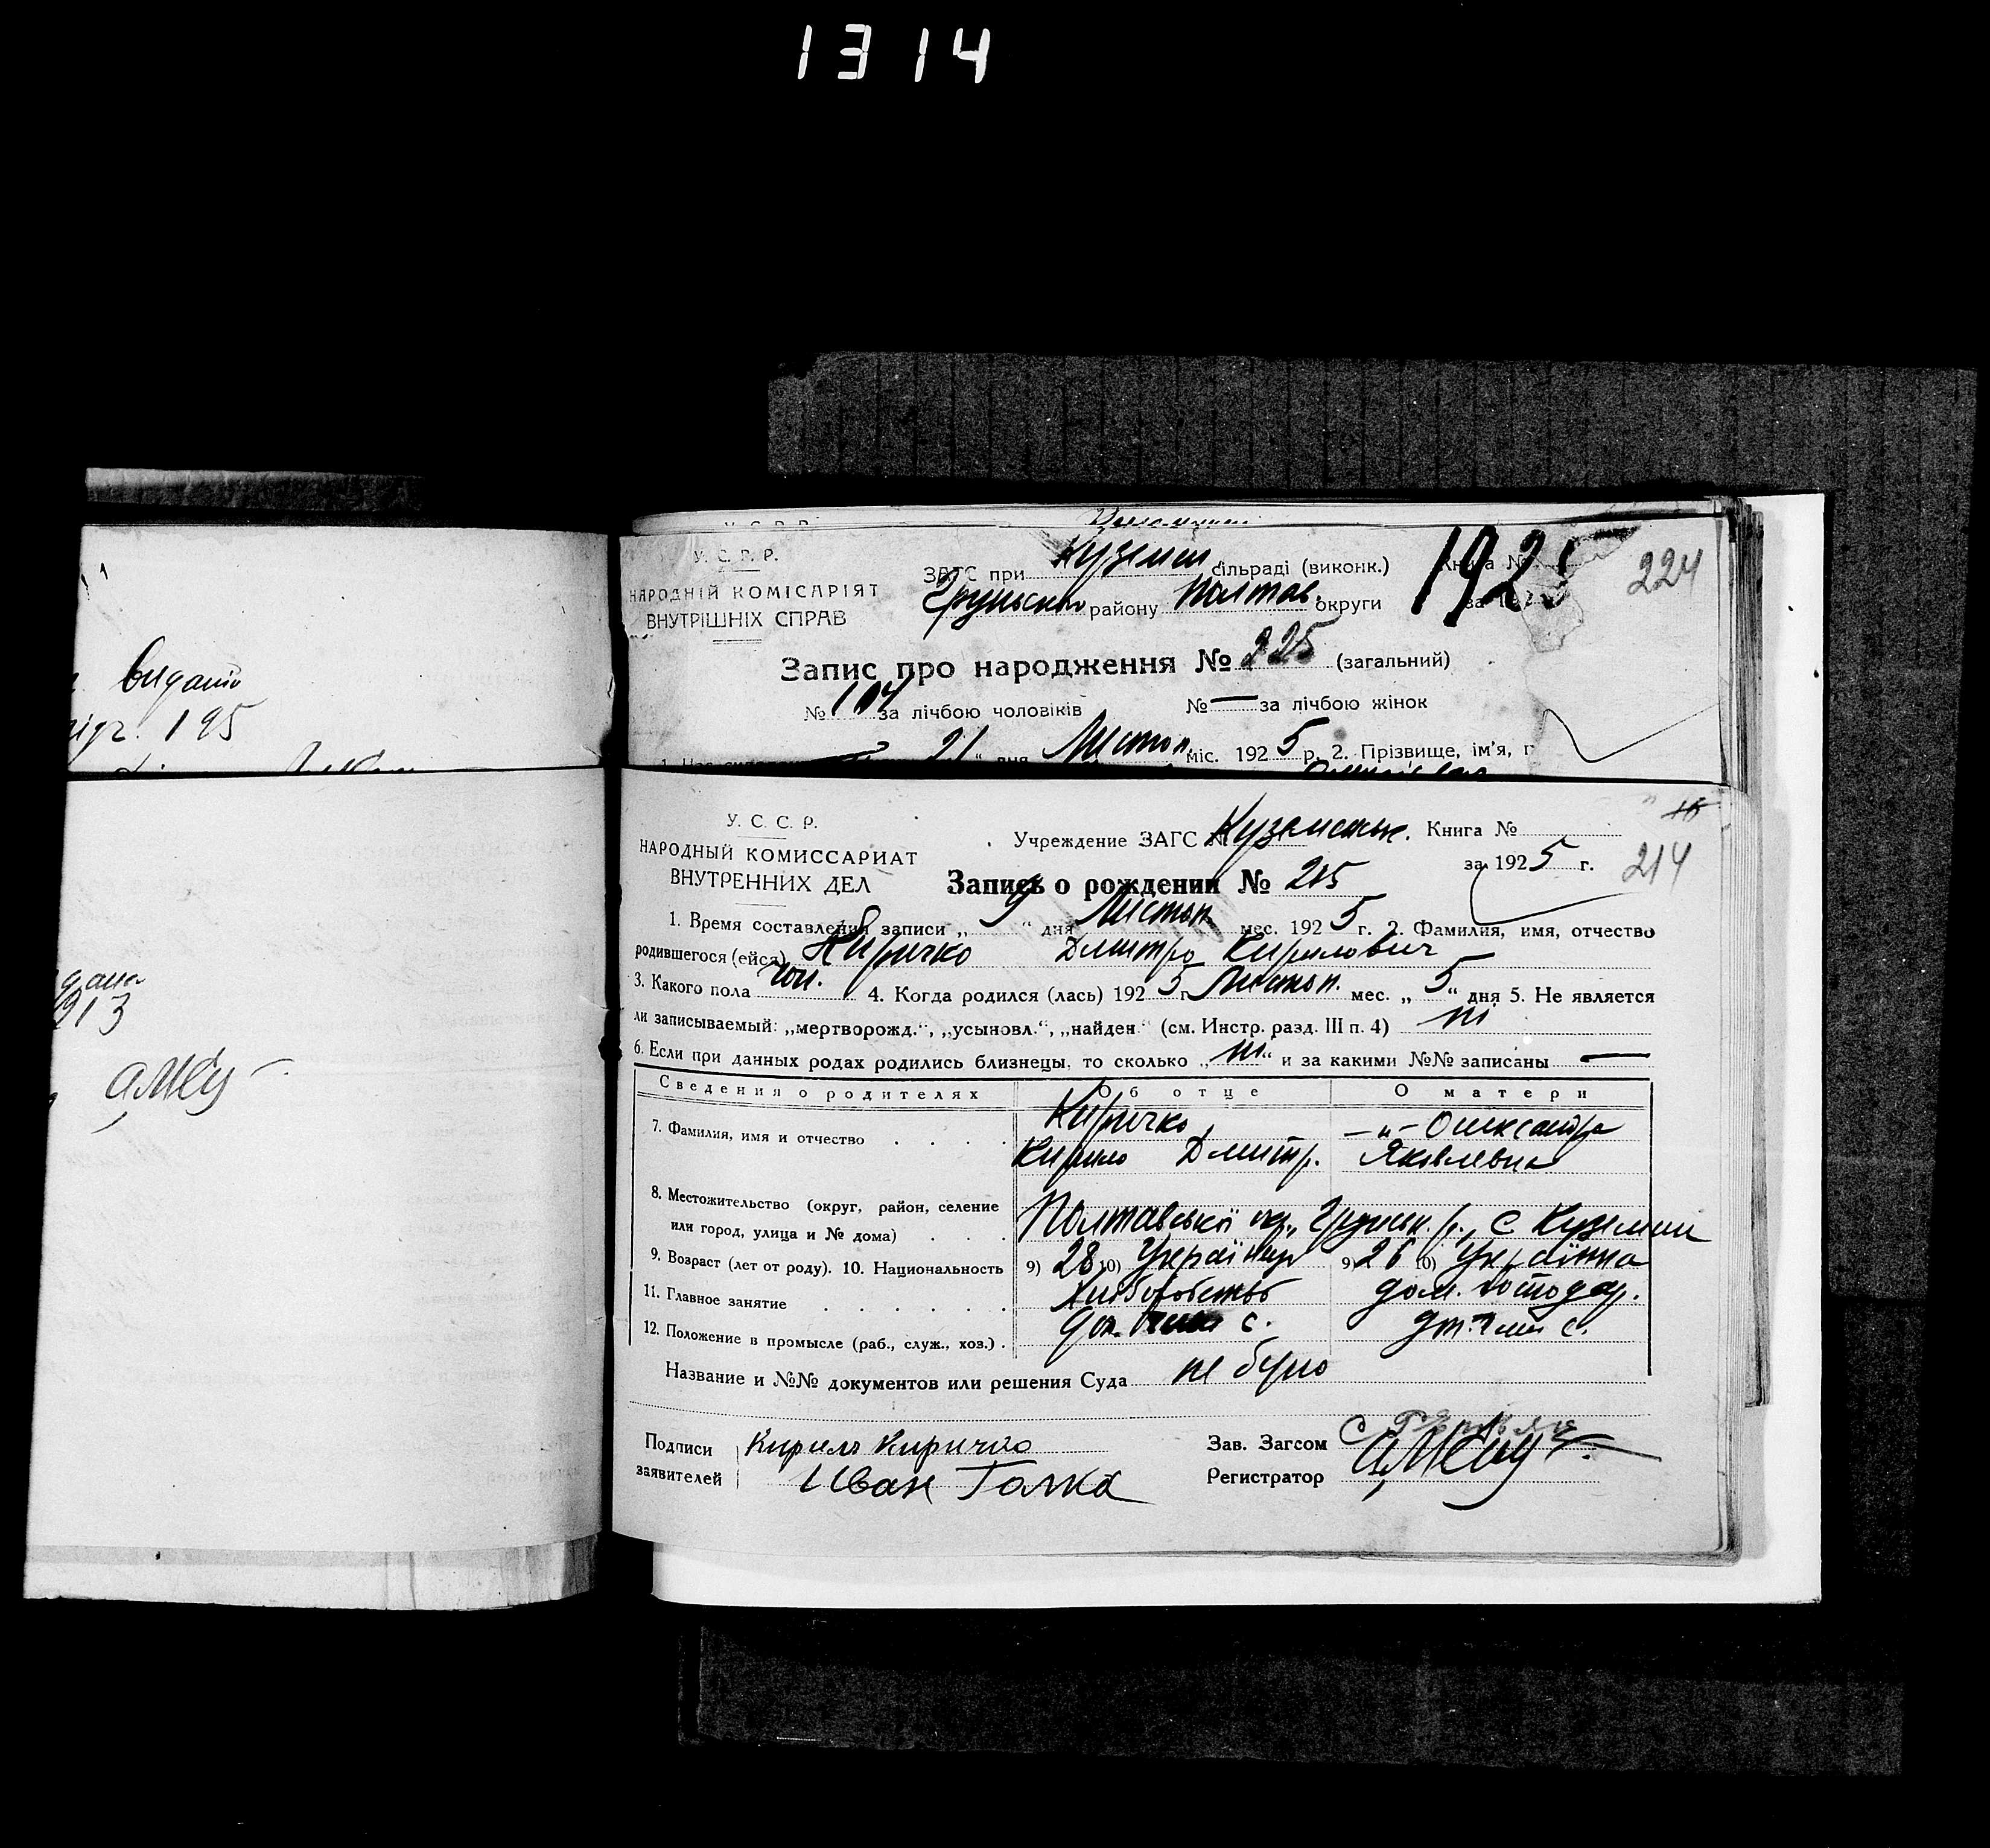 1314
У. С. Р. Р.
НАРОДНІЙ КОМІСАРІЯТ
ВНУТРІШНІХ СПРАВ
ЗАГС при Куземин. сільраді (виконк.) Книга №
Грунськ. району Полтав. округи за 1925
224
Запис про народження № 225 (загальний)
№ 104 за лічбою чоловіків № — за лічбою жінок
21 " дня Листоп. міс. 1925 р. 2. Прізвище, ім'я, п
видано
195
дано
213
У. С. С. Р.
НАРОДНЫЙ КОМИССАРИАТ
ВНУТРЕННИХ ДЕЛ
Учреждение ЗАГС № Куземськ. Книга №
за 1925 г.
214
Запись о рождении № 215
1. Время составления записи „ 9 “ дня Листоп. мес. 1925 г. 2. Фамилия, имя, отчество
родившегося (ейся) Киричко Дмитро Кирилович
3. Какого пола чол. 4. Когда родился (лась) 1925 г. Листоп. мес. „ 5 “ дня 5. Не является
ли записываемый: „мертворожд.“, „усыновл.“, „найден“ (см. Инстр. разд. III п. 4) ні
6. Если при данных родах родились близнецы, то сколько „ ні “ и за какими №№ записаны —
Сведения о родителях Об отце О матери
7. Фамилия, имя и отчество Киричко –"– Олександра
Кирило Дмитр. Яковлевна
8. Местожительство (округ, район, селение
или город, улица и № дома) Полтавської окр., Грунськ. р., с Куземин
9. Возраст (лет от роду). 10. Национальность 9) 28 10) Українец 9) 26 10) Українка
11. Главное занятие Хліборобство дом. господар.
12. Положение в промысле (раб., служ., хоз.) . с. с.
Название и №№ документов или решения Суда не було
Подписи Кирило Киричко Зав. Загсом
заявителей Иван Галка Регистратор